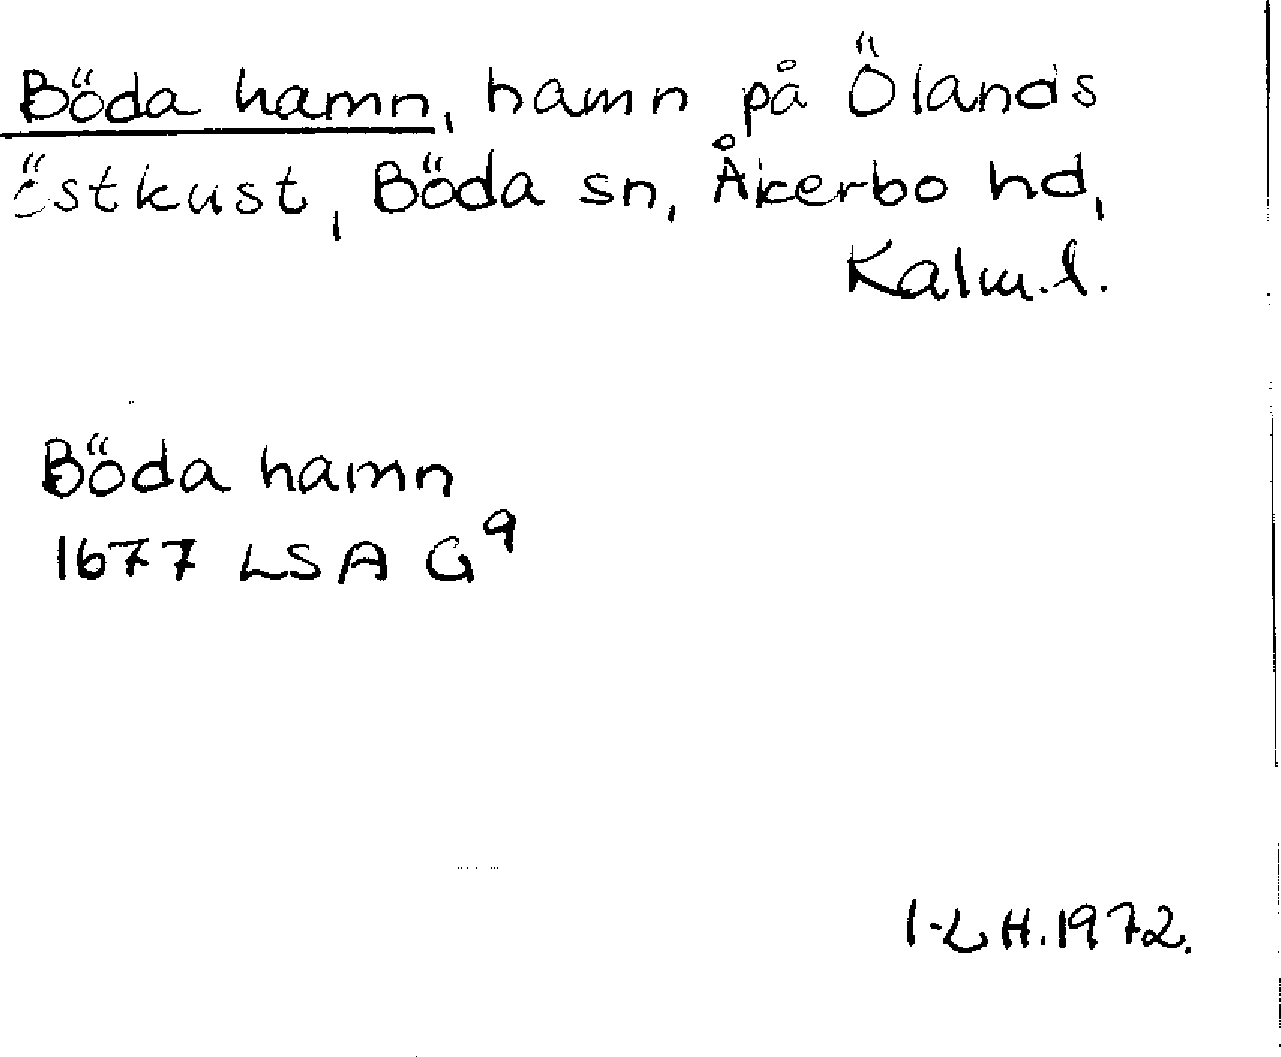 Böda hamn, hamn på Ölands
östkust, Böda sn, Åkerbo hd,
Kalm.l.
Böda hamn
1677 LSA G⁹
I-LH.1972.